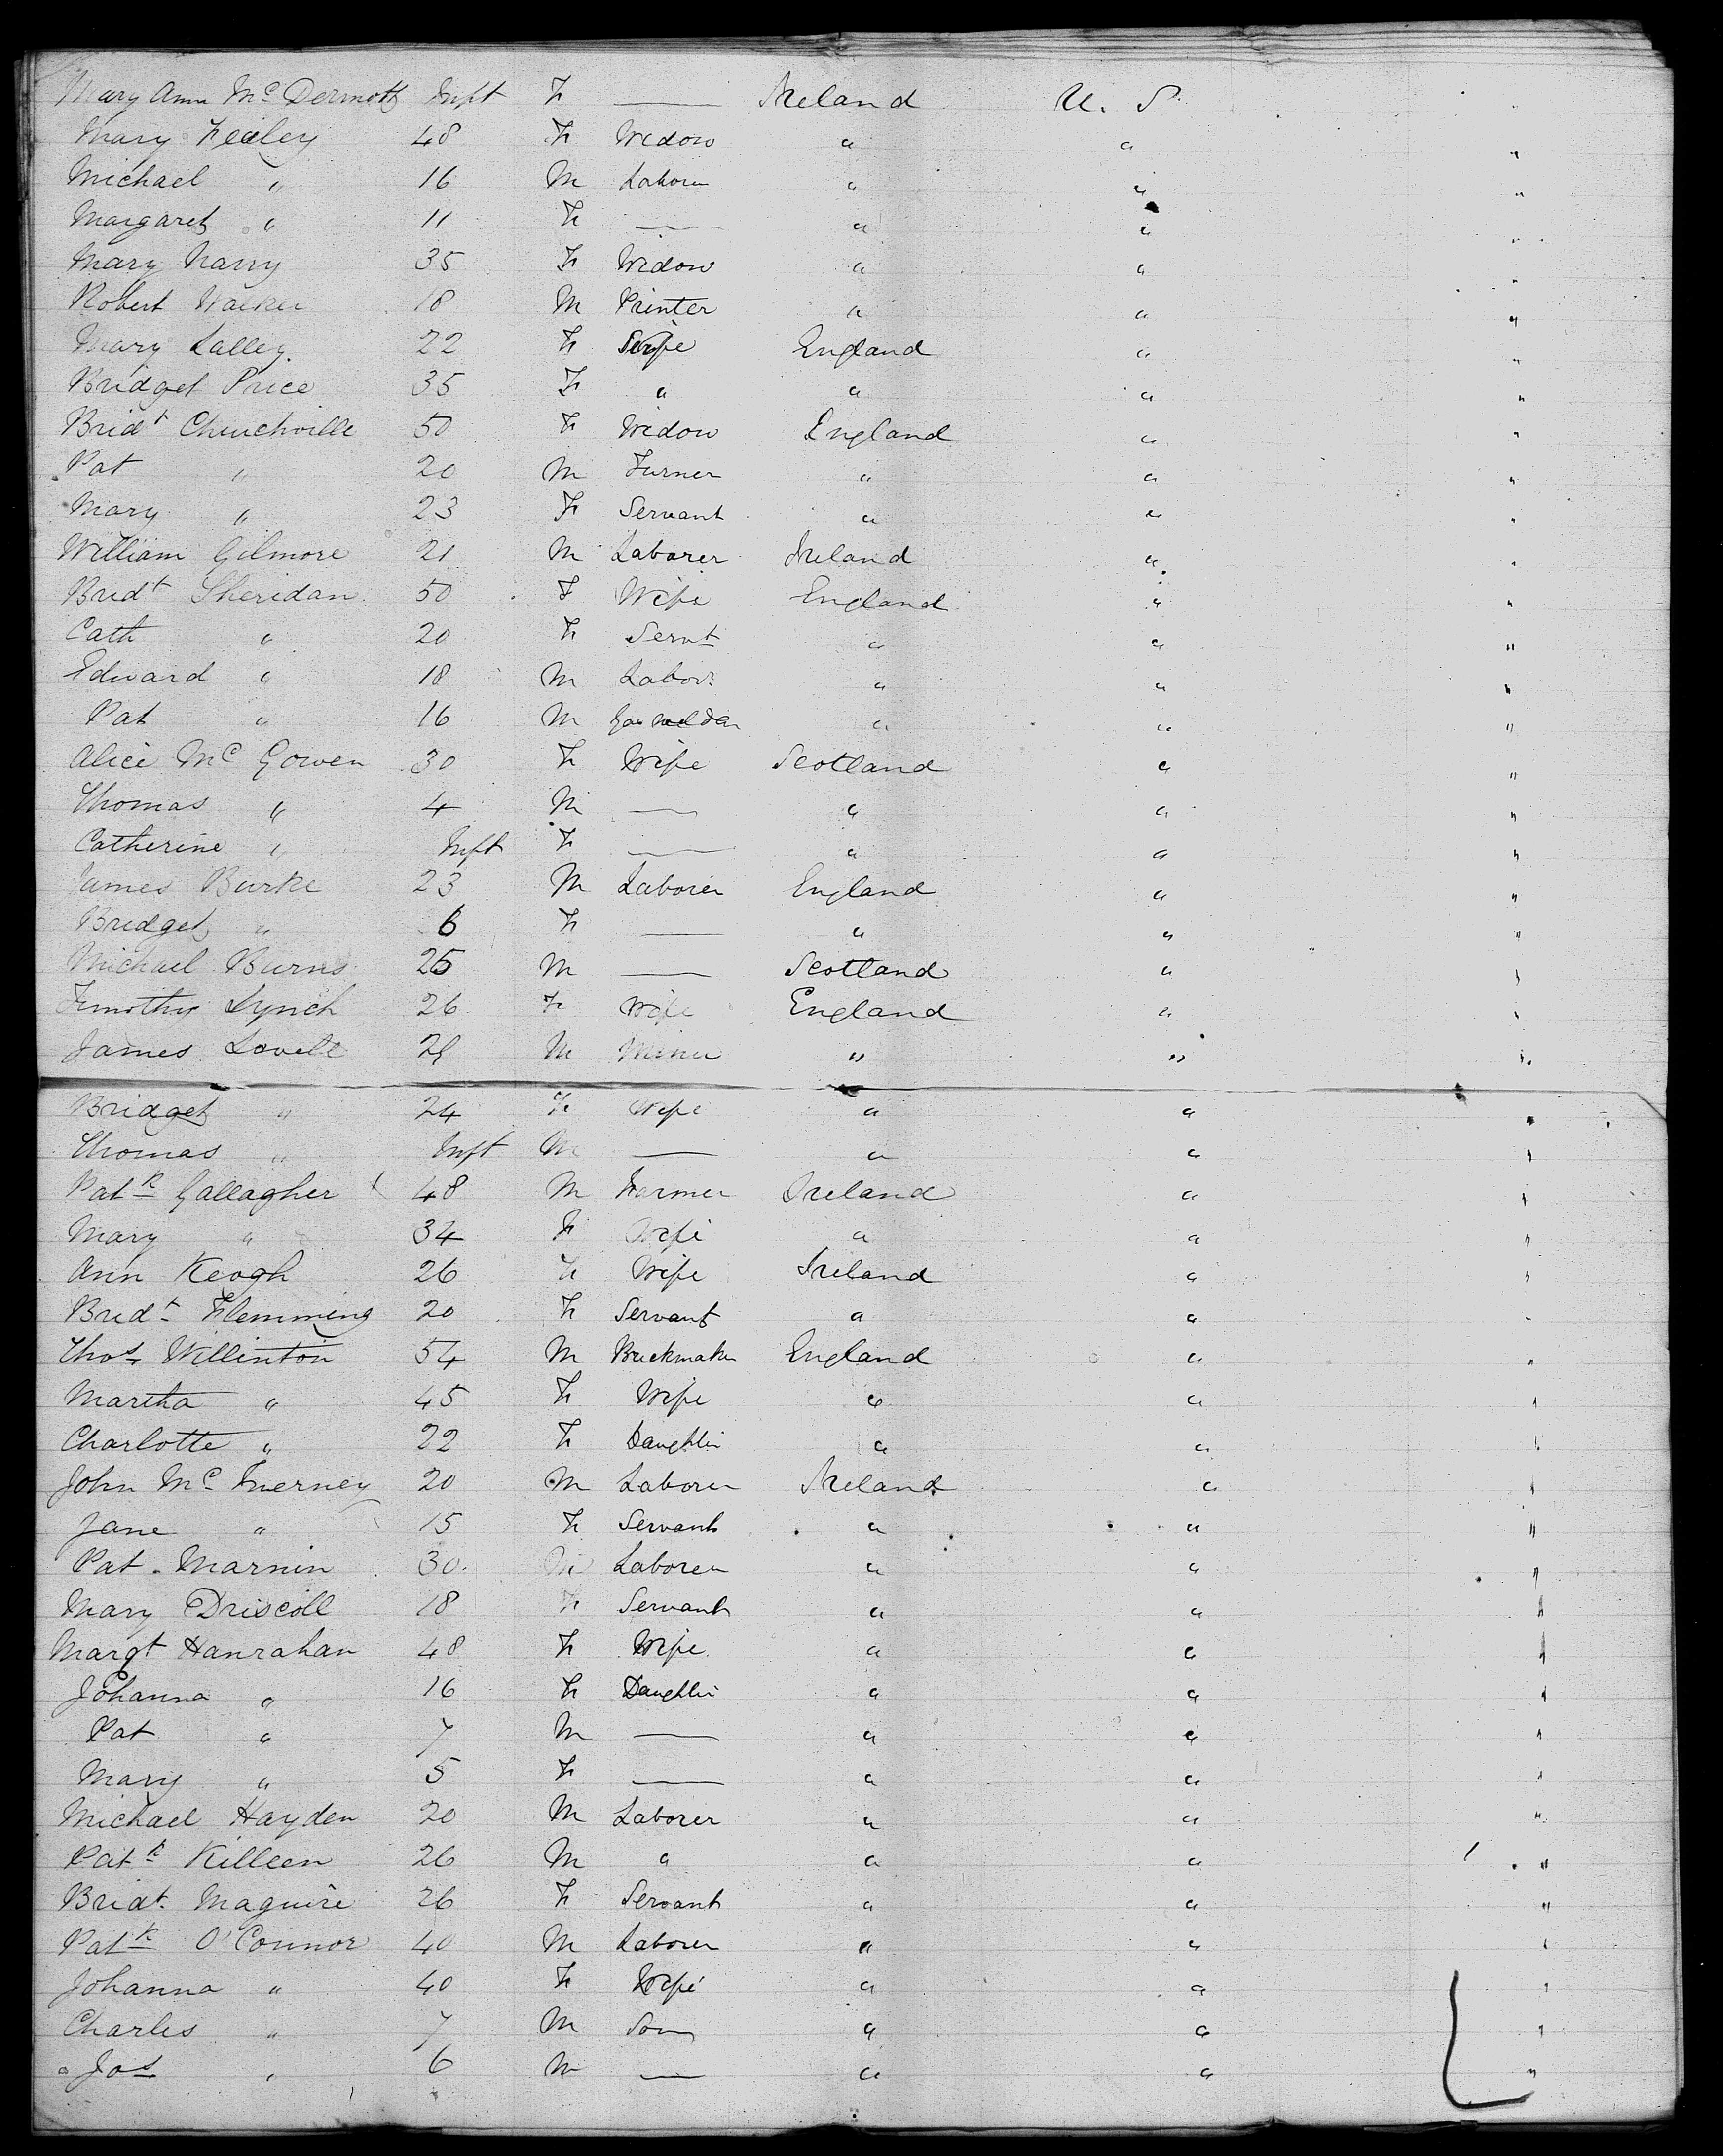 Mary Ann McDermott Inft F — Ireland U. S. "
Mary Fealey 48 F Widow " " "
Michael " 16 M Labourer " " "
Margaret " 11 F — " " "
Mary Narry 35 F Widow " " "
Robert Walker 18 M Printer " " "
Mary Lalley. 22 F Wife England " "
Bridget Price 35 F " " " "
Bridt Churchville 50 F Widow England " "
Pat " 20 M Turner " " "
Mary " 23 F Servant " " "
William Gilmore 21 M Laborer Ireland " "
Bridt Sheridan 50 F Wife England " "
Cath " 20 F Servt " " "
Edward " 18 M Labor. " " "
Pat " 16 M " " "
Alice Mc Gowen 30 F Wife Scotland " "
Thomas " 4 M — " " "
Catherine " Inft F — " " "
James Burke 23 M Laborer England " "
Bridget " 6 F — " " "
Michael Burns 25 M — Scotland " "
Timothy Lynch 26 F Wife England " "
James Lovell 29 M Miner " " "
Bridget " 24 F Wife " " "
Thomas " Inft M — " " "
Patk Gallagher 48 M Farmer Ireland " "
Mary " 34 F Wife " " "
Ann Keogh 26 F Wife Ireland " "
Bridt Flemming 20 F Servant " " "
Thos Willinton 54 M Brickmaker England " "
Martha " 45 F Wife " " "
Charlotte " 22 F Daughter " " "
John Mc Inerney 20 M Laborer Ireland " "
Jane " 15 F Servant " " "
Pat Marnin 30 M Laborer " " "
Mary Driscoll 18 F Servant " " "
Margt Hanrahan 48 F Wife " " "
Johanna " 16 F Daughter " " "
Pat " 7 M — " " "
Mary " 5 F — " " "
Michael Hayden 20 M Laborer " " "
Patk Killeen 26 M " " " "
Bridt. Maguire 26 F Servant " " "
Patk O'Connor 40 M Laborer " " "
Johanna " 40 F Wife " " "
Charles " 7 M Son " " "
Jos " 6 M — " " "